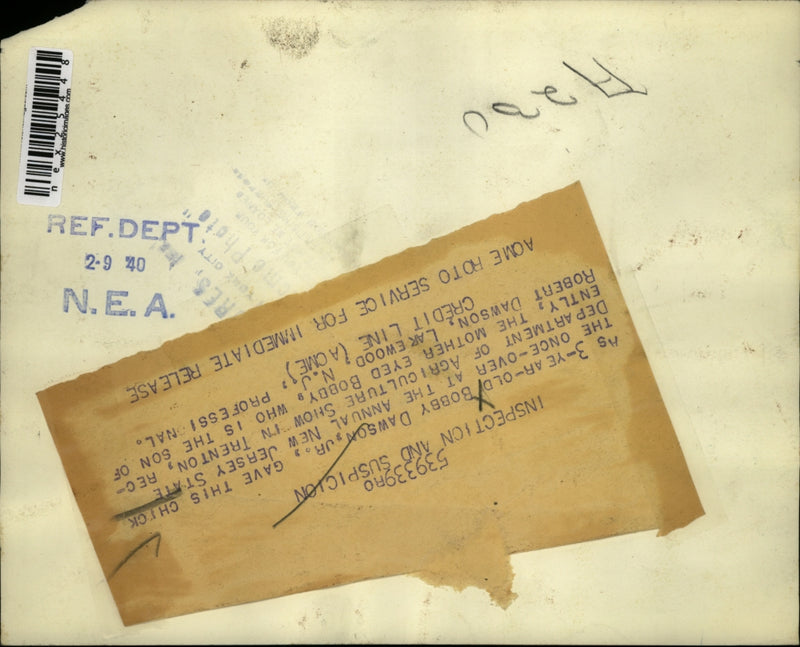 nex25448
www.historicimages.com
REF. DEPT.
2-9 '40
N. E. A.
539339RO
INSPECTION AND SUSPICION
AS 3-YEAR-OLD BOBBY DAWSON, JR., GAVE THIS CHICK
THE ONCE-OVER AT THE ANNUAL NEW JERSEY STATE
DEPARTMENT OF AGRICULTURE SHOW IN TRENTON, REC-
ENTLY, THE MOTHER EYED BOBBY, WHO IS THE SON OF
ROBERT DAWSON, LAKEWOOD, N.J., PROFESSI NAL.
CREDIT LINE (ACME)
ACME ROTO SERVICE FOR IMMEDIATE RELEASE